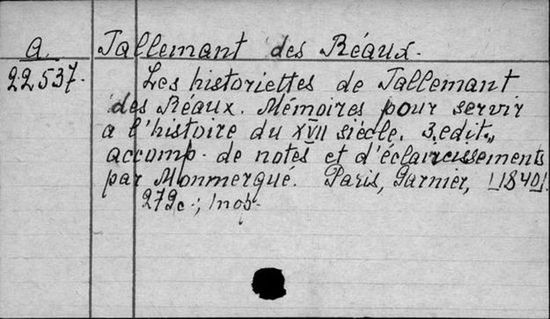 a. Tallemant des Réaux.
22537. Les historiettes de Tallemant
des Réaux. Mémoires pour servir
a l'histoire du XVII siécle. 3. edit.,
accomp. de notes et d'éclaircissements
par Monmerqué. Paris, Garnier, [1840].
279c.;